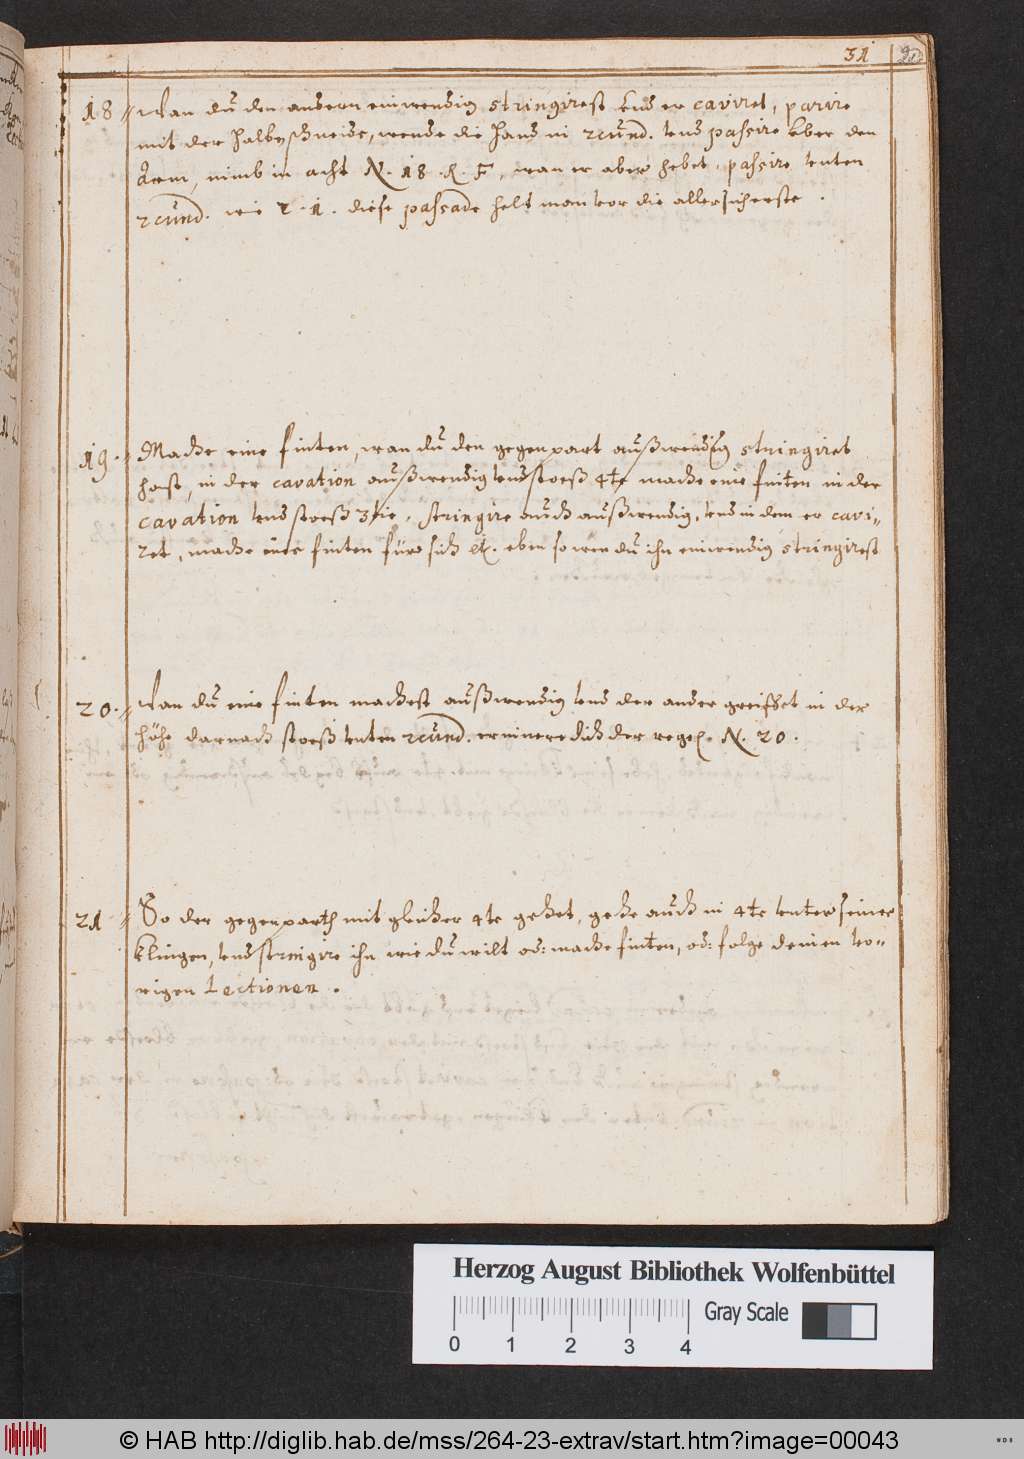 31
18 // Wan du den andern einwendig stringirest und er caviret, parire
mit der halben schneide, wende die Hand in 2cund. und passire über den
Arm, nimb in acht N. 18. R. F, wan er aber hebet, passire unten
2cund. wie L. 1. diese passade helt man vor die allersicherste.
19. // Mache eine finten, wan du den gegenpart außwendig stringiret
hast, in der cavation außwendig und stoeß 4te mache eine finten in der
cavation und stoeß 3tie, stringire auch außwendig, und in dem er cavi-
ret, mache eine finten für sich etc. eben so wen du ihn einwendig stringirest
20. // Wan du eine finten machest außwendig und der ander greiffet in der
höhe darnach stoeß unten 2cund. erinnere dich der regel. N. 20.
21 // So der gegenparth mit gleicher 4te gehet, gehe auch in 4te unter seiner
klingen, und stringire ihn wie du wilt od: mache finten, od: folge deinen vo-
rigen Lectionen.
Herzog August Bibliothek Wolfenbüttel
0 1 2 3 4 Gray Scale
© HAB http://diglib.hab.de/mss/264-23-extrav/start.htm?image=00043